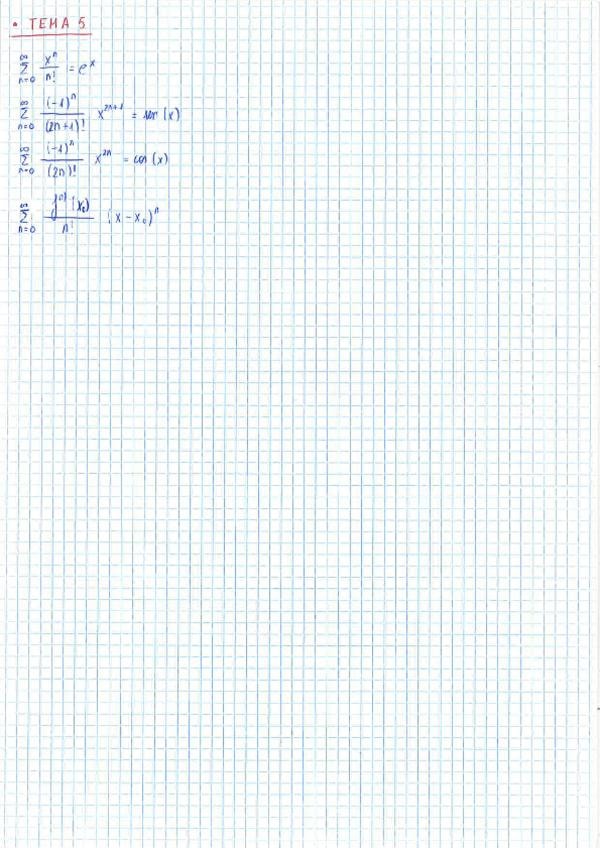 • TEMA 5
∑_{n=0}^{∞} x^n / n! = e^x
∑_{n=0}^{∞} (-1)^n / (2n+1)! x^{2n+1} = sen (x)
∑_{n=0}^{∞} (-1)^n / (2n)! x^{2n} = cos (x)
∑_{n=0}^{∞} f^{n)} (x_0) / n! (x - x_0)^n